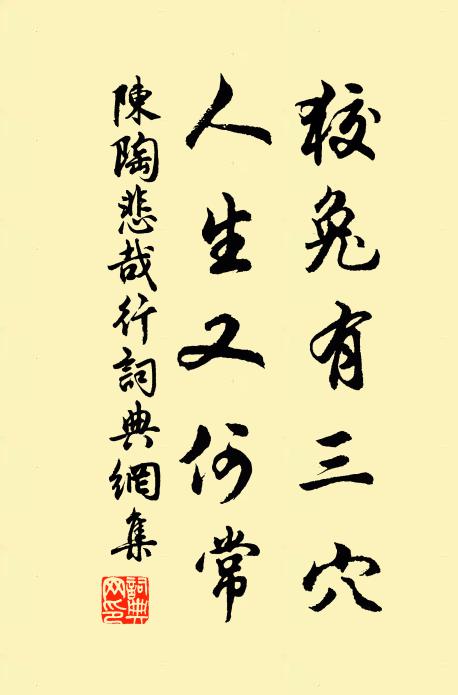 狡兔有三穴
人生又何常
陳陶悲哉行詞典網集
詞典網印